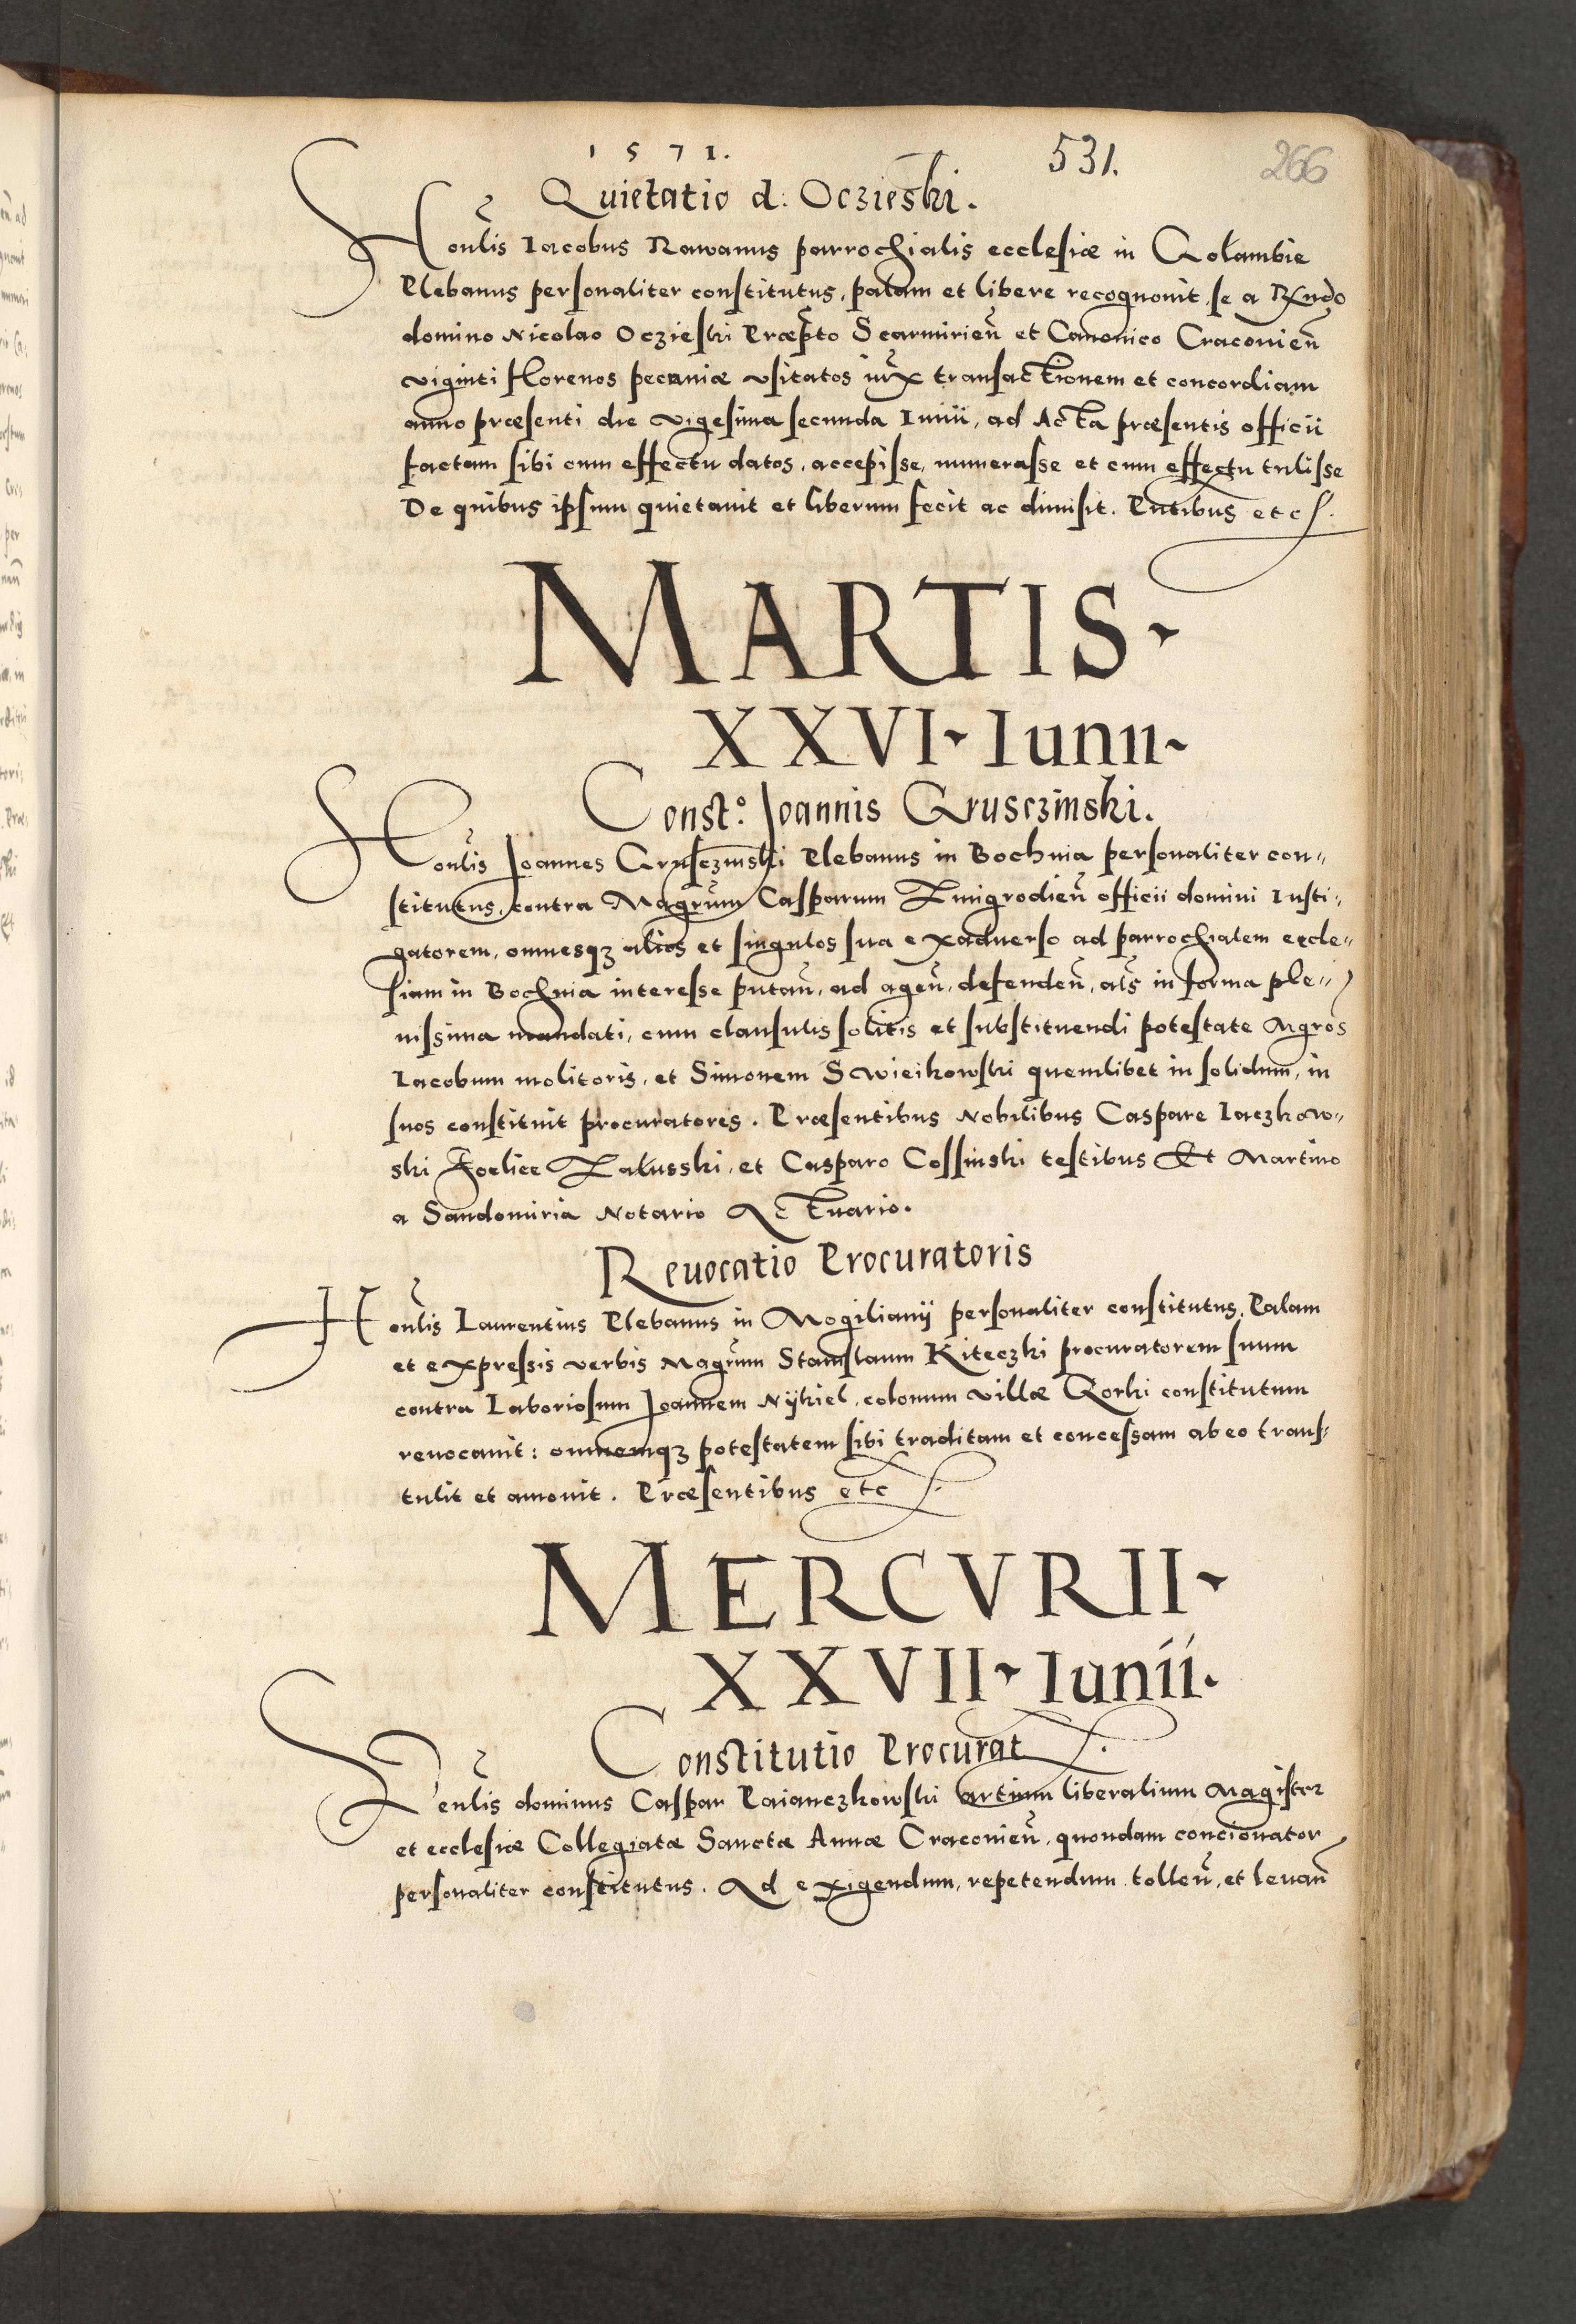 1571.
531.
266
Quietatio d: Oczieski.
Honlis Iacobus Rawanus parrochialis ecclesiæ in Gołambie
Plebanus personaliter constitutus, palam et libere recognouit, se a Rndo
domino Nicolao Oczieski Præpto Scarmirien et Canonico Craconien
viginti florenos pecuniæ vsitatos iux transactionem et concordiam
anno præsenti die vigesima secunda Iunii, ad Acta præsentis officii
factam sibi cum effectu datos, accepisse, numerasse et cum effectu tulisse
De quibus ipsum quietauit et liberum fecit ac dimisit. Pntibus etc
MARTIS
XXVI Iunii
Const.º Joannis Grusczinski.
Honlis Joannes Grusczinski Plebanus in Bochnia personaliter con„
stitutus, contra Magrum Casparum Zmigrodien officii domini Insti„
gatorem, omnesqꝫ alios et singulos sua exaduerso ad parrochialem eccle„
siam in Bochnia interesse putan, ad agen, defenden, als in forma ple„
nissima mandati, cum clausulis solitis et substituendi potestate Mgros
Iacobum molitoris, et Simonem Swieikowski quemlibet in solidum, in
suos constituit procuratores. Præsentibus Nobilibus Caspare Iaczkow„
ski Foelice Załusski, et Casparo Cossinski testibus Et Martino
a Sandomiria Notario Actuario.
Reuocatio Procuratoris
Honlis Laurentius Plebanus in Mogilianÿ personaliter constitutus, Palam
et expressis verbis Magrum Stanislaum Kiteczki procuratorem suum
contra Laboriosum Joannem Nÿkiel, colonum villæ Gorki constitutum
reuocauit: omnemqꝫ potestatem sibi traditam et concessam ab eo trans„
tulit et amouit. Præsentibus etc
MERCVRII
XXVII Iunii.
Constitutio Procurat
Venlis dominus Caspar Paianczkowski artium liberalium Magister
et ecclesiæ Collegiatæ Sanctæ Annæ Craconien, quondam concionator
personaliter constitutus. Ad exigendum, repetendum, tollen, et leuan